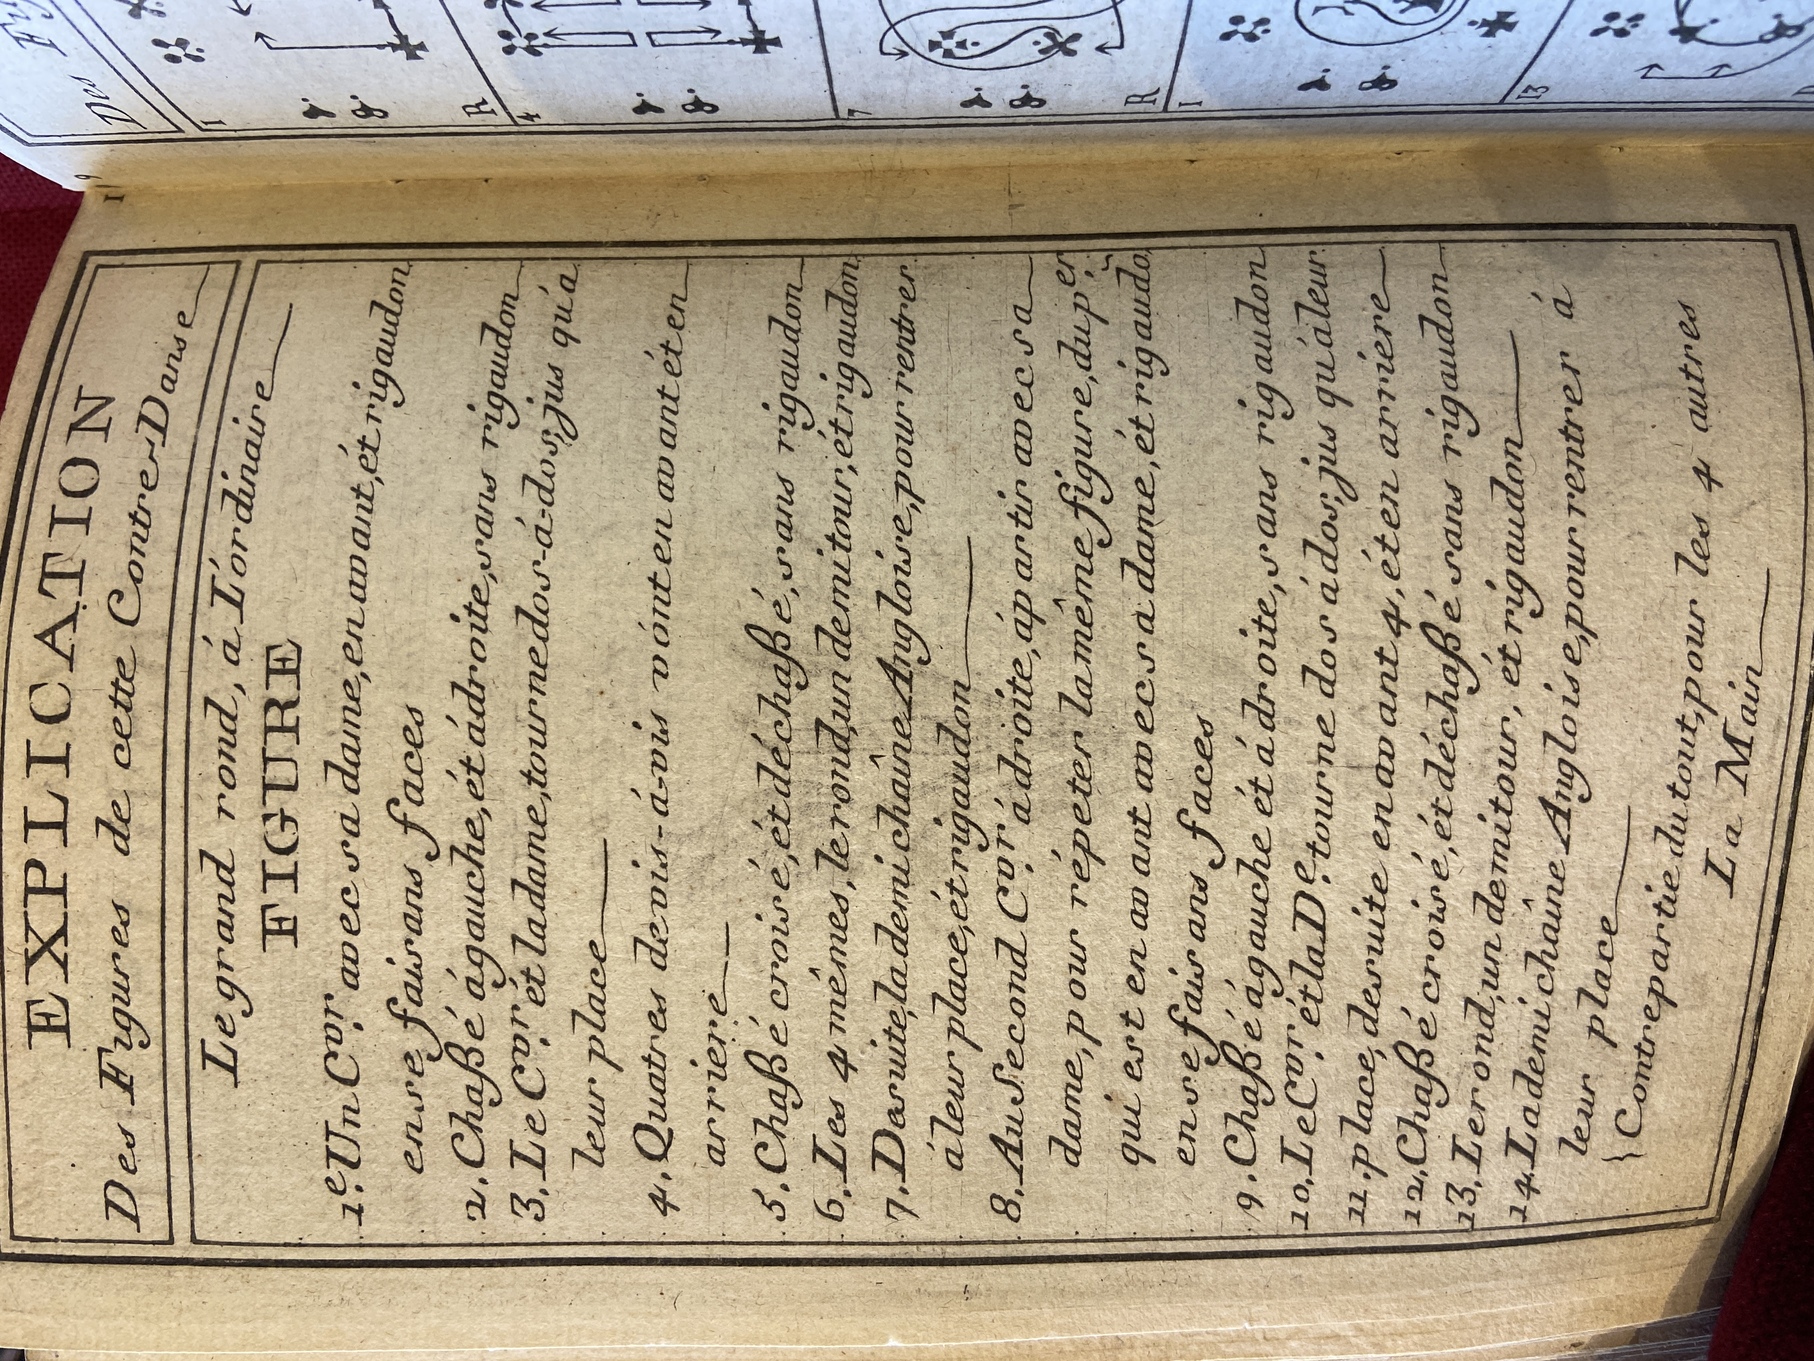 EXPLICATION
Des Figures de cette Contre-Danse
Le grand rond, á L'ordinaire
FIGURE
1.e Un Cor. avec sa dame, en avant, ét rigaudon
en se faisans faces
2. Chaßé á gauche, ét á droite, sans rigaudon
3. Le Cor. ét la dame, tourne dos-á-dos, jus qu'a
leur place
4. Quatres de vis-á-vis vónt en avant ét en
arriere
5. Chaßé croisé, ét déchaßé, sans rigaudon
6. Les 4 mêmes, le rond, un demi tour, ét rigaudon
7. De suite, la demi chaîne Angloise, pour rentrer
á leur place, ét rigaudon
8. Au Second Cor. á droite, áp artir avec sa
dame, pour répeter la même figure, du p.er
qui est en avant avec sa dame, ét rigaudo
en se faisans faces
9. Chaßé á gauche ét á droite, sans rigaudon
10. Le Cor. ét la De. tourne dos á dos, jus qu'á leur
11. place, de suite en avant 4, ét en arriere
12. Chaßé croisé, ét déchaßé sans rigaudon
13. Le rond, un demi tour, ét rigaudon
14. La demi chaîne Angloise, pour rentrer á
leur place
{ Contrepartie du tout, pour les 4 autres
La Main
19
Des
1
R
4
7
R
1
13